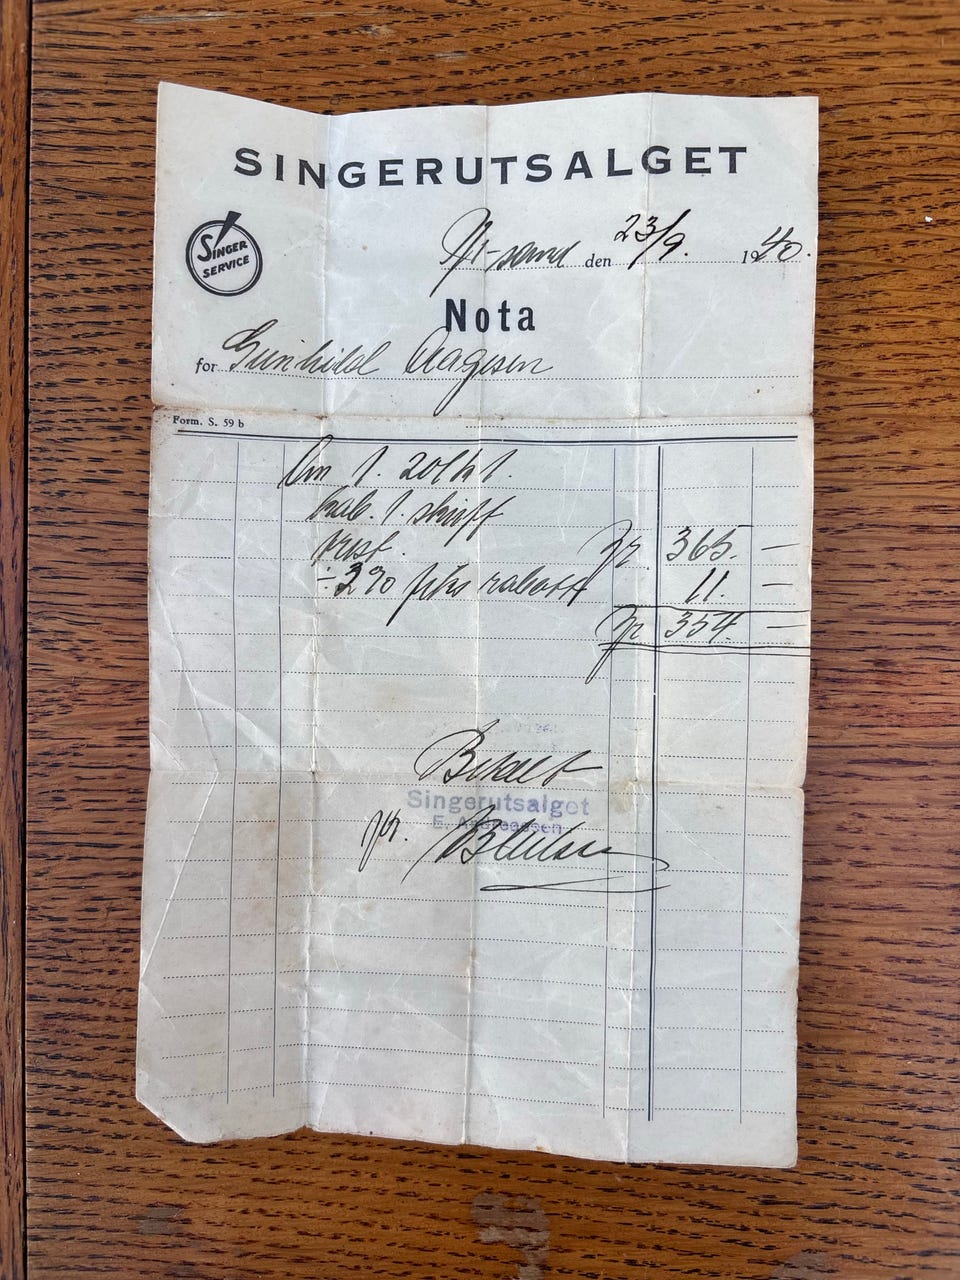 SINGERUTSALGET
SINGER
SERVICE
Kr-sand den 23/9. 1940.
Nota
for Gunhild Aagesen
Form. S. 59 b
1. 201
kab. 1 skuff
kr. 365. —
÷ 3% rabatt 11. —
kr. 354. —
Betalt
Singerutsalget
E. Andreassen
pr.